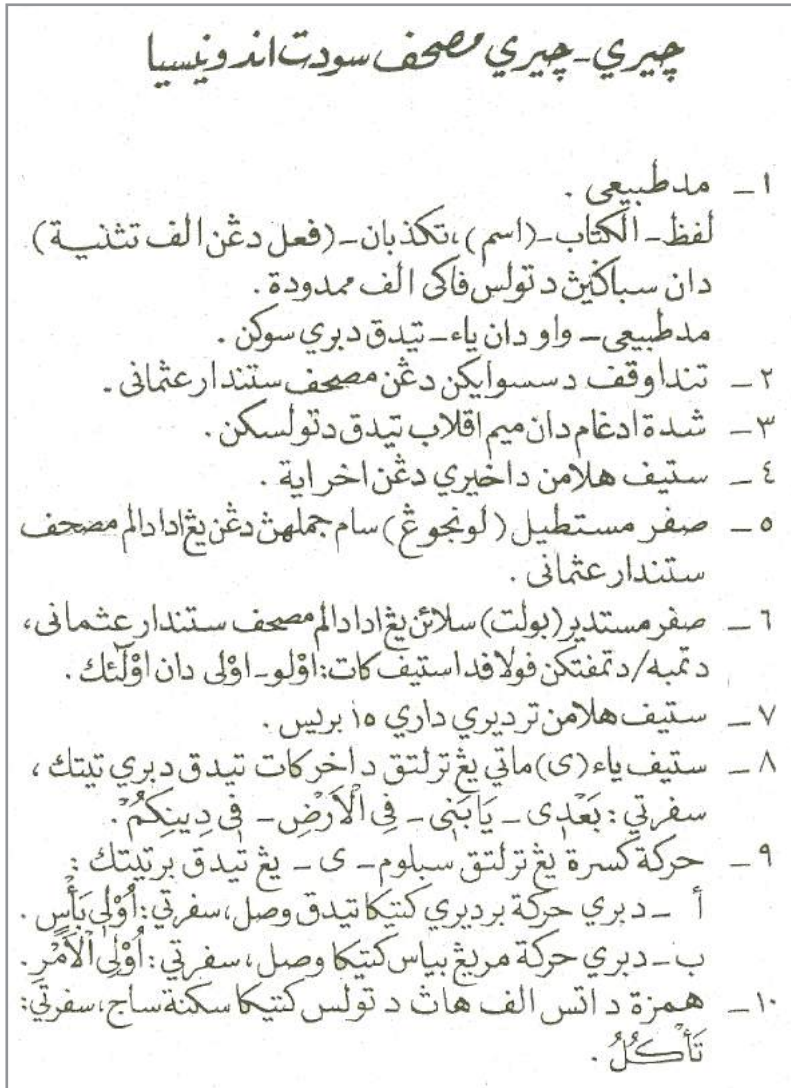 چيري - چيري مصحف سودت اندونيسيا
١ – مد طبيعى .
لفظ – الكتاب – (اسم)، تكذبان – (فعل دغن الف تثنية)
دان سباكينڽ دتولس فاكى الف ممدودة .
مد طبيعى – واو دان ياء – تيدق دبري سوكن .
٢ – تندا وقف دسسوايكن دغن مصحف ستندار عثمانى .
٣ – شدة ادغام دان ميم اقلاب تيدق دتولسكن .
٤ – ستيف هلامن داخيري دغن اخر اية .
٥ – صفر مستطيل (لونجوڠ) سام جملهڽ دڠن يڠ ادادالم مصحف
ستندار عثمانى .
٦ – صفر مستدير (بولت) سلائن يڠ ادادالم مصحف ستندار عثمانى،
دتمبه/دتمفتكن فولا فدا ستيف كات: اوْلو – اوْلى دان اوْلٓئك .
٧ – ستيف هلامن ترديري داري ١٥ بريس .
٨ – ستيف ياء (ى) ماتي يڠ ترلتق داخر كات تيدق دبري تيتك ،
سفرتي : بَعْدِى – يَابَنِى – فِى الْاَرْضِ – فِى دِينِكُمْ .
٩ – حركة كسرة يڠ ترلتق سبلوم – ى – يڠ تيدق برتيتك :
أ – دبري حركة برديري كتيكا تيدق وصل، سفرتي : اُوْلِى بَأْسٍ .
ب – دبري حركة مريڠ بياس كتيكا وصل، سفرتي : اُوْلِى الْاَمْرِ .
١٠ – همزة داتس الف هاڽ دتولس كتيكا سكنة ساج، سفرتي:
تَأْكُلُ .